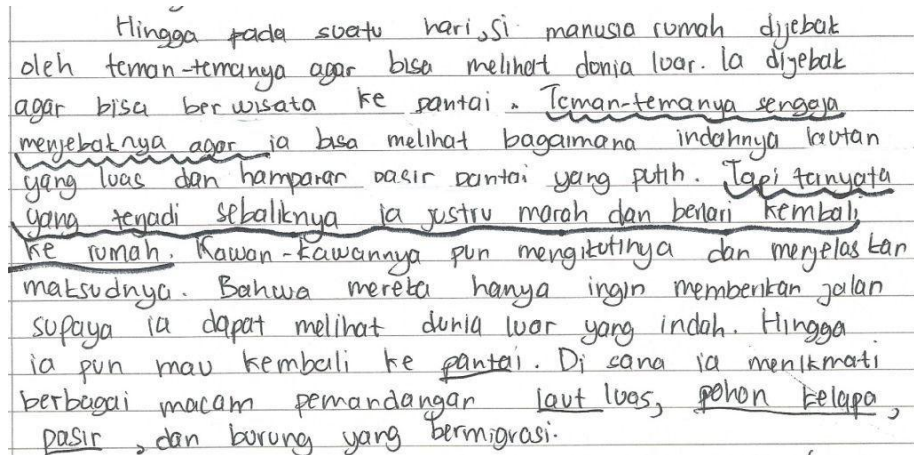 Hingga pada suatu hari, si manusia rumah dijebak
oleh teman-temanya agar bisa melihat dunia luar. Ia dijebak
agar bisa berwisata ke pantai. Teman-temanya sengaja
menjebaknya agar ia bisa melihat bagaimana indahnya lautan
yang luas dan hamparan pasir pantai yang putih. Tapi ternyata
yang terjadi sebaliknya ia justru marah dan berlari kembali
ke rumah. Kawan-kawannya pun mengikutinya dan menjelaskan
maksudnya. Bahwa mereka hanya ingin memberikan jalan
supaya ia dapat melihat dunia luar yang indah. Hingga
ia pun mau kembali ke pantai. Di sana ia menikmati
berbagai macam pemandangan laut luas, pohon kelapa,
pasir, dan burung yang bermigrasi.